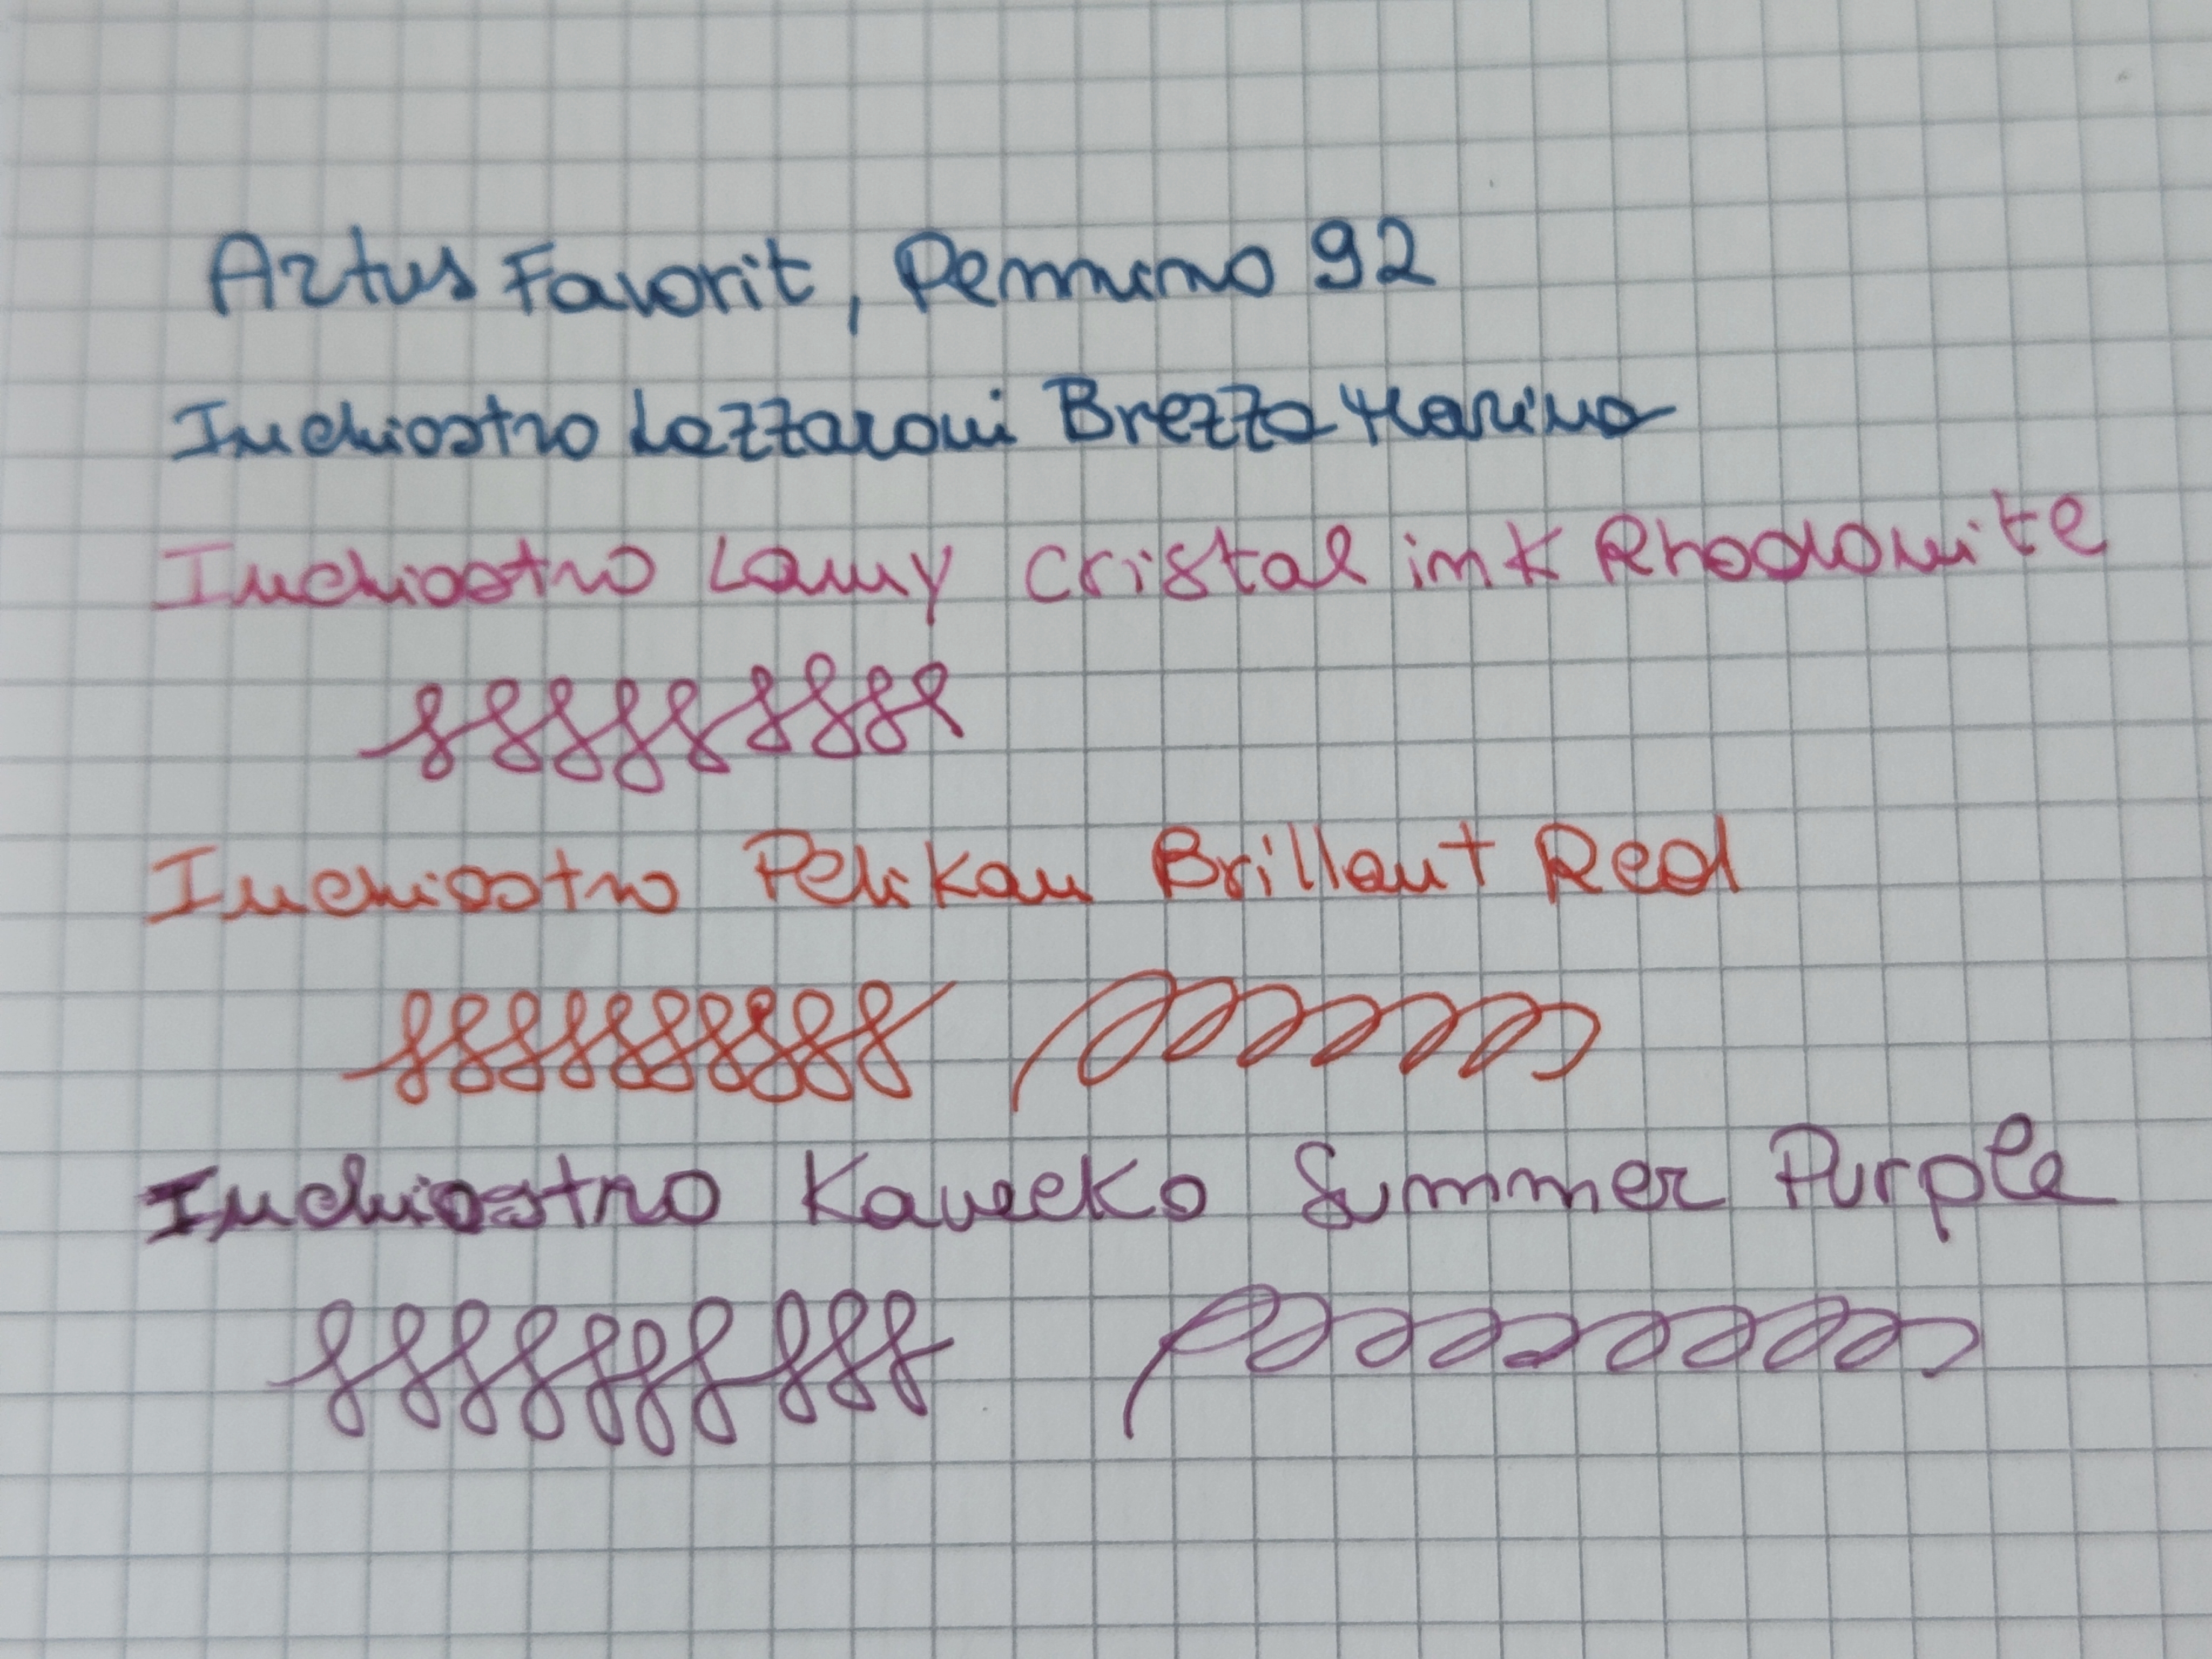 Artus Favorit, Pennino 92
Inchiostro Lazzaroni Brezza Marina
Inchiostro Lamy Cristal ink Rhodonite
Inchiostro Pelikan Brillant Red
Inchiostro Kaweko Summer Purple